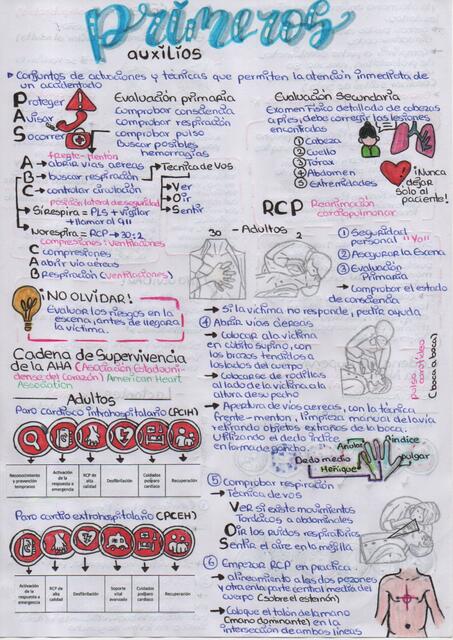 primeros
auxilios
Conjuntos de actuaciones y técnicas que permiten la atención inmediata de
un accidentado
Proteger
Avisar
Socorrer
Evaluación primaria
comprobar consciencia
comprobar respiración
comprobar pulso
Buscar posibles
hemorragias
frente-menton
A → abrir vias aéreas
B → buscar respiración
C → controlar circulación
Técnica de Vos
Ver
Oir
Sentir
posición lateral de seguridad
Si respira = PLS + vigilar
+ llamar al 911
No respira = RCP → 30:2
compresiones: ventilaciones
Compresiones
Abrir via aéreas
Respiración (ventilaciones)
Evaluación Secundaria
Examen Fisico detallado de cabezas
a pies, debe corregir las lesiones
encontradas
1 Cabeza
2 Cuello
3 Tórax
4 Abdomen
5 Extremidades
¡Nunca
dejar
solo al
paciente!
RCP Reanimación
cardiopulmonar
30 - Adultos 2
1 Seguridad
personal "Yo"
2 Asegurar la Escena
3 Evaluación
Primaria
→ Comprobar el estado
de consciencia
→ Si la victima no responde, pedir ayuda
¡NO OLVIDAR!
Evaluar los riesgos en la
escena, antes de llegar a
la víctima.
Cadena de Supervivencia
de la AHA (Asociación Estadouni-
dense del Corazón) American Heart
Association
Adultos
Paro cardiaco intrahospitalario (PCIH)
Reconocimiento y prevención tempranos
Activación de la respuesta a emergencia
RCP de alta calidad
Desfibrilación
Cuidados posparo cardíaco
Recuperación
Paro cardio extrahospitalario (PCEH)
Activación de la respuesta a emergencia
RCP de alta calidad
Desfibrilación
Soporte vital avanzado
Cuidados posparo cardíaco
Recuperación
4 Abrir vias aéreas
→ Colocar a la victima
en cúbito supino, con
los brazos tendidos a
los lados del cuerpo
→ Colocarse de rodillas
al lado de la victima a la
altura de su pecho
pulso carotídeo
(boca a boca)
→ Apertura de vias aereas, con la técnica
frente-menton, limpieza manual de la via
retirando objetos extraños de la boca.
Utilizando el dedo índice
en forma de gancho
Anular
índice
Dedo medio
pulgar
Meñique
5 Comprobar respiración
→ Técnica de vos
Ver si existe movimientos
Torácicos a abdominales
Oir los ruidos respiratorios
Sentir el aire en la mejilla.
6 Empezar RCP en practica
→ alineamiento a las dos pezones
y otra en la parte central media del
cuerpo (sobre el esternón)
→ Coloque el talon de la mano
(mano dominante) en la
intersección de ambos lineas